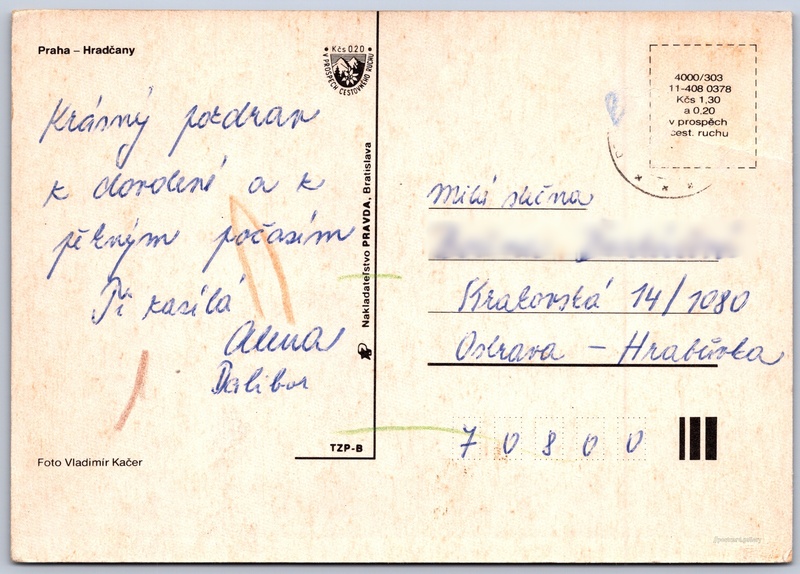 Praha – Hradčany
Kčs 0.20
V PROSPĚCH CESTOVNÉHO RUCHU
Krásný pozdrav
k dovolené a k
pěkným počasím
Ti zasílá
Alena
Dalibor
Foto Vladimír Kačer
TZP–B
Nakladatelstvo PRAVDA, Bratislava
4000/303
11-408 0378
Kčs 1,30
a 0,20
v prospěch
cest. ruchu
Milá slečna
Krakovská 14/1080
Ostrava – Hrabůvka
7 0 8 0 0